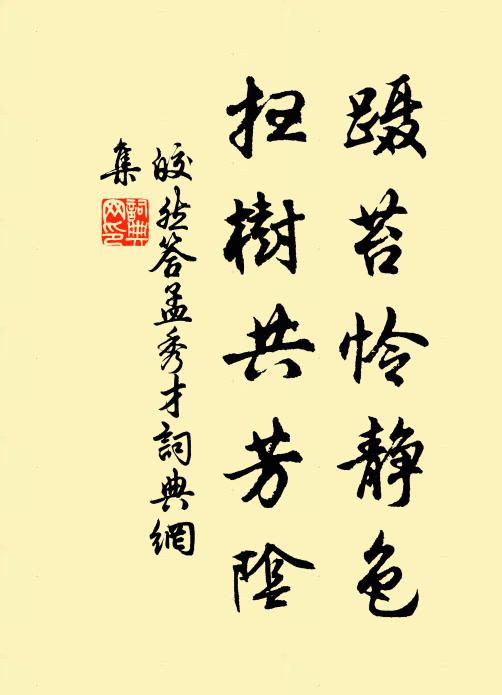 蹑苔怜静色
扫樹共芳陰
皎然答孟秀才詞典網
集
詞典
网印